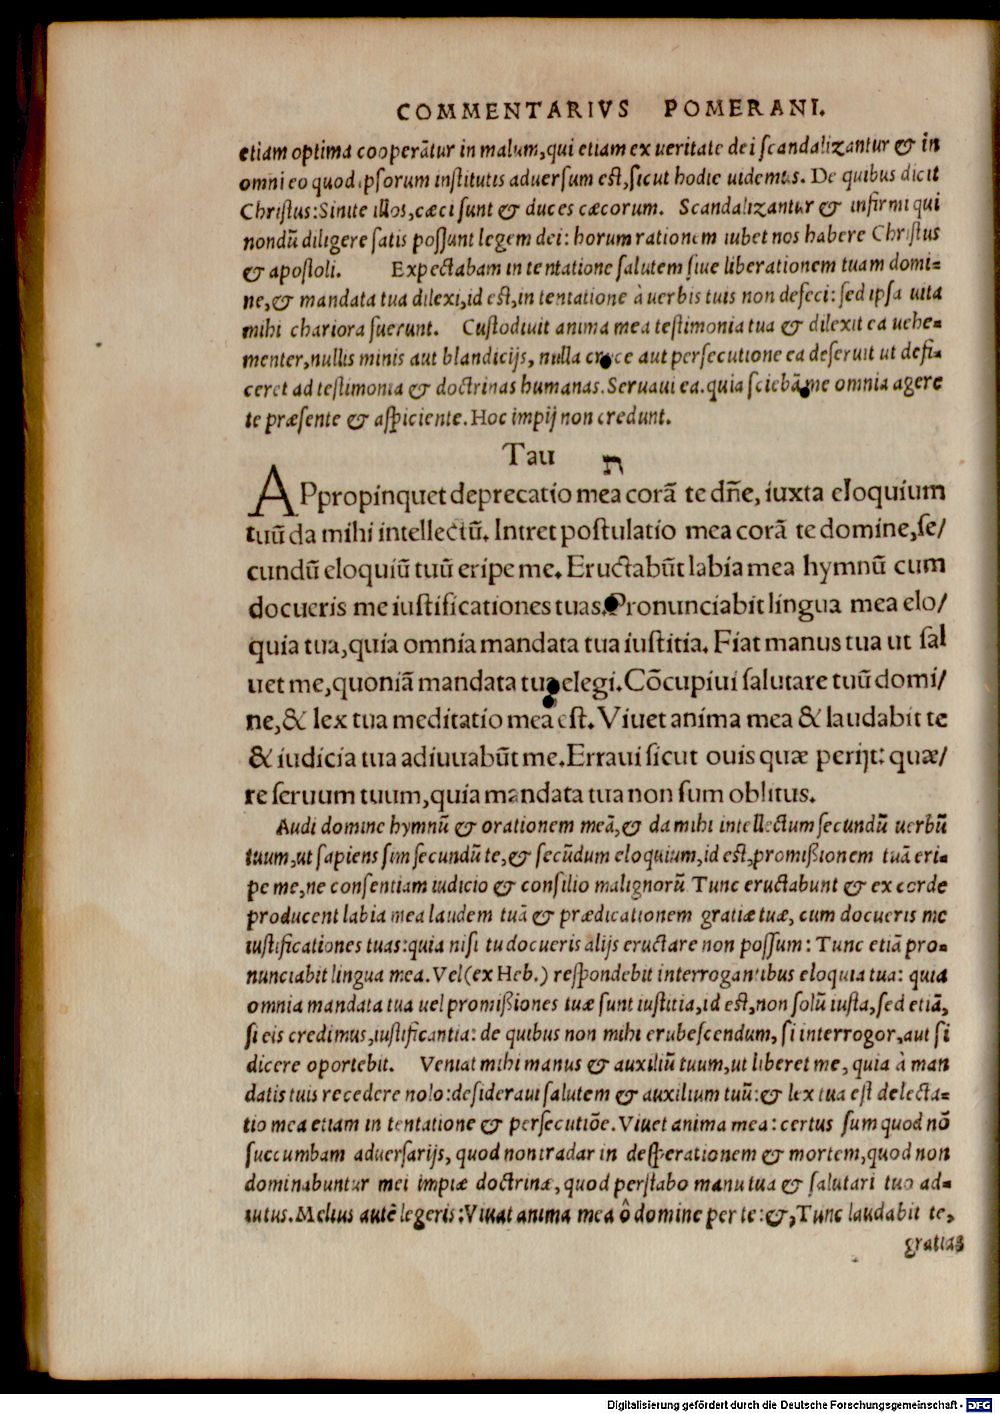 COMMENTARIVS POMERANI.
etiam optima cooperãtur in malum, qui etiam ex ueritate dei scandalizantur & in
omni eo quod ipsorum institutis aduersum est, sicut hodie uidemus. De quibus dicit
Christus: Sinite illos, cæci sunt & duces cæcorum. Scandalizantur & infirmi qui
nondũ diligere satis possunt legem dei: horum rationem iubet nos habere Christus
& apostoli. Expectabam in tentatione salutem siue liberationem tuam domi=
ne, & mandata tua dilexi, id est, in tentatione à uerbis tuis non defeci: sed ipsa uita
mihi chariora fuerunt. Custodiuit anima mea testimonia tua & dilexit ea uehe=
menter, nullis minis aut blandicijs, nulla cruce aut persecutione ea deseruit ut defi=
ceret ad testimonia & doctrinas humanas. Seruaui ea. quia sciebã me omnia agere
te præsente & aspiciente. Hoc impij non credunt.
Tau ת
APpropinquet deprecatio mea corã te dñe, iuxta eloquium
tuũ da mihi intellectũ. Intret postulatio mea corã te domine, se/
cundũ eloquiũ tuũ eripe me. Eructabũt labia mea hymnũ cum
docueris me iustificationes tuas. Pronunciabit lingua mea elo/
quia tua, quia omnia mandata tua iustitia. Fiat manus tua ut sal
uet me, quoniã mandata tua elegi. Cõcupiui salutare tuũ domi/
ne, & lex tua meditatio mea est. Viuet anima mea & laudabit te
& iudicia tua adiuuabũt me. Erraui sicut ouis quæ perijt: quæ/
re seruum tuum, quia mandata tua non sum oblitus.
Audi domine hymnũ & orationem meã, & da mihi intellectum secundũ uerbũ
tuum, ut sapiens sim secundũ te, & secũdum eloquium, id est, promißionem tuã eri=
pe me, ne consentiam iudicio & consilio malignorũ Tunc eructabunt & ex corde
producent labia mea laudem tuã & prædicationem gratiæ tuæ, cum docueris me
iustificationes tuas: quia nisi tu docueris alijs eructare non possum: Tunc etiã pro=
nunciabit lingua mea. Vel (ex Heb.) respondebit interrogantibus eloquia tua: quia
omnia mandata tua uel promißiones tuæ sunt iustitia, id est, non solũ iusta, sed etiã,
si eis credimus, iustificantia: de quibus non mihi erubescendum, si interrogor, aut si
dicere oportebit. Veniat mihi manus & auxiliũ tuum, ut liberet me, quia à man
datis tuis recedere nolo: desideraui salutem & auxilium tuũ: & lex tua est delecta=
tio mea etiam in tentatione & persecutiõe. Viuet anima mea: certus sum quod nõ
succumbam aduersarijs, quod non tradar in desperationem & mortem, quod non
dominabuntur mei impiæ doctrinæ, quod perstabo manu tua & salutari tuo ad=
iutus. Melius autẽ legeris: Viuat anima mea ô domine per te: &, Tunc laudabit te,
gratias
Digitalisierung gefördert durch die Deutsche Forschungsgemeinschaft - DFG